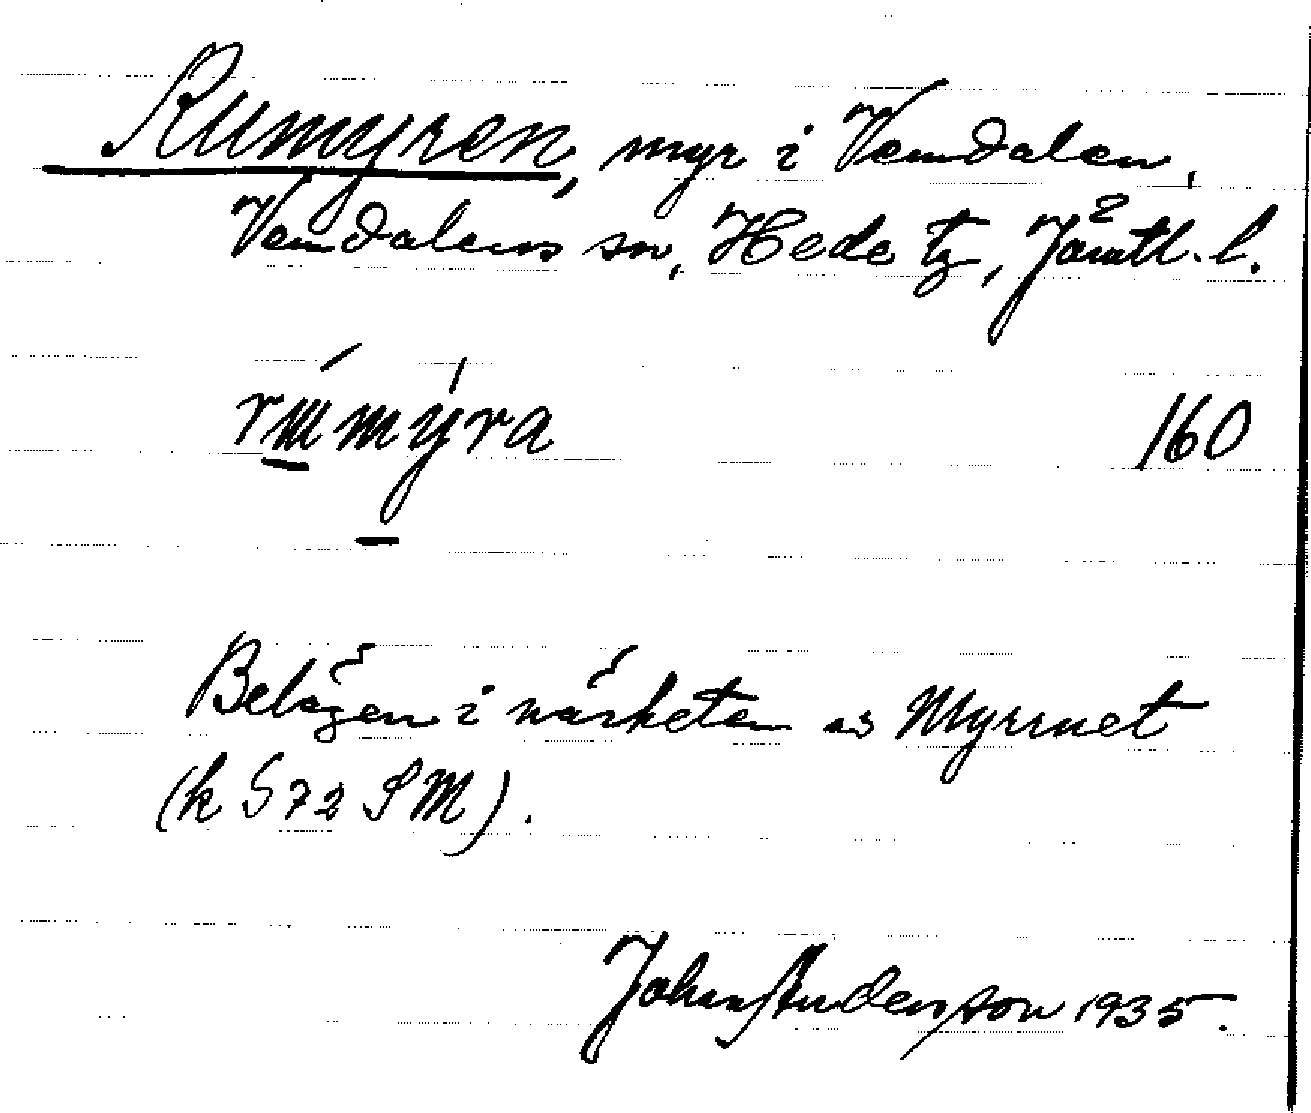 Rumyren, myr i Vemdalen,
Vemdalens sn, Hede tg, Jämtl. l.
rúmýra 160
Belägen i närheten av Myrmet
(k S 72 SM).
Johan Andersson 1935.